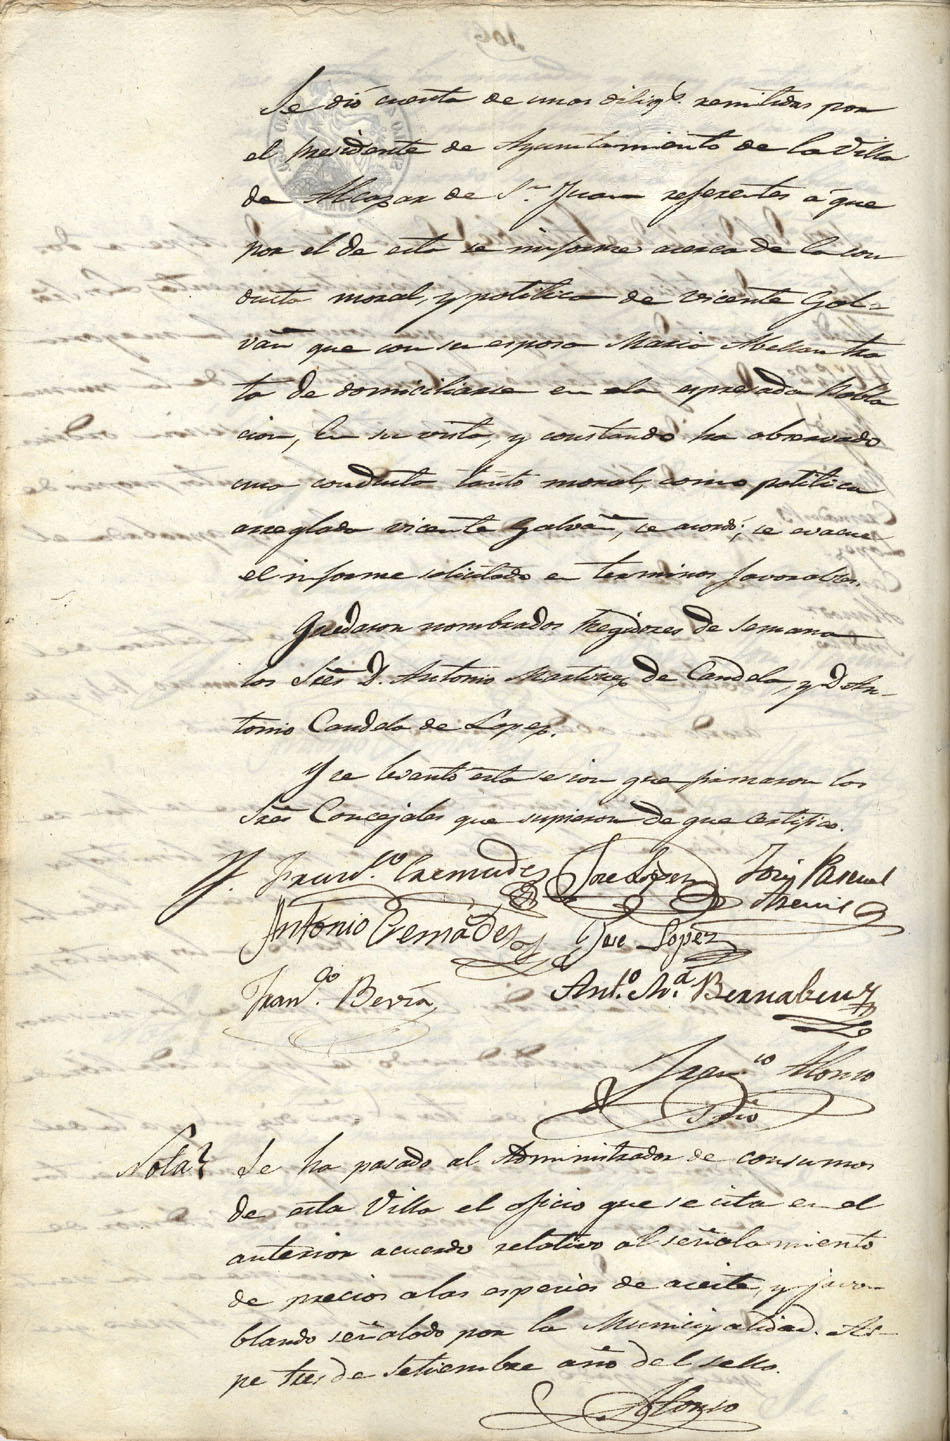 Se dió cuenta de unas dilig.s remitidas por
el Presidente de Ayuntamiento de la Villa
de Alcazar de S.n Juan referentes á que
por el de esta se informe acerca de la con
ducta moral, y politica de Vicente Gal-
vañ que con su esposa Maria Abellan tra
ta de domiciliarse en ela espresada Pobla
cion, En su vista, y constando ha observado
una conducta tanto moral, como politica
arreglada Vicente Galvañ, se acordó; se evacue
el informe solicitado en terminos favorables.
Quedaron nombrados Regidores de Semana
los Sres D. Antonio Martinez de Candela, y D. An-
tonio Candela de Lopez.
Y se levantó esta sesion que firmaron los
Sres Concejales que supieron de que certifico.
Fran.co Cremades Jose Lopez José Pascual
Asencio
Antonio Cremades Jose Lopez
Fran.co Beviá Ant.o M.a Bernabeu
Fran.co Alonso
S.rio
Nota Se ha pasado al Administrador de consumos
de esta Villa el oficio que se cita en el
anterior acuerdo relativo al señalamiento
de precios a las especies de aceite, y javon
blando señalado por la Municipalidad. As-
pe tres de Setiembre año del sello.
Alonso